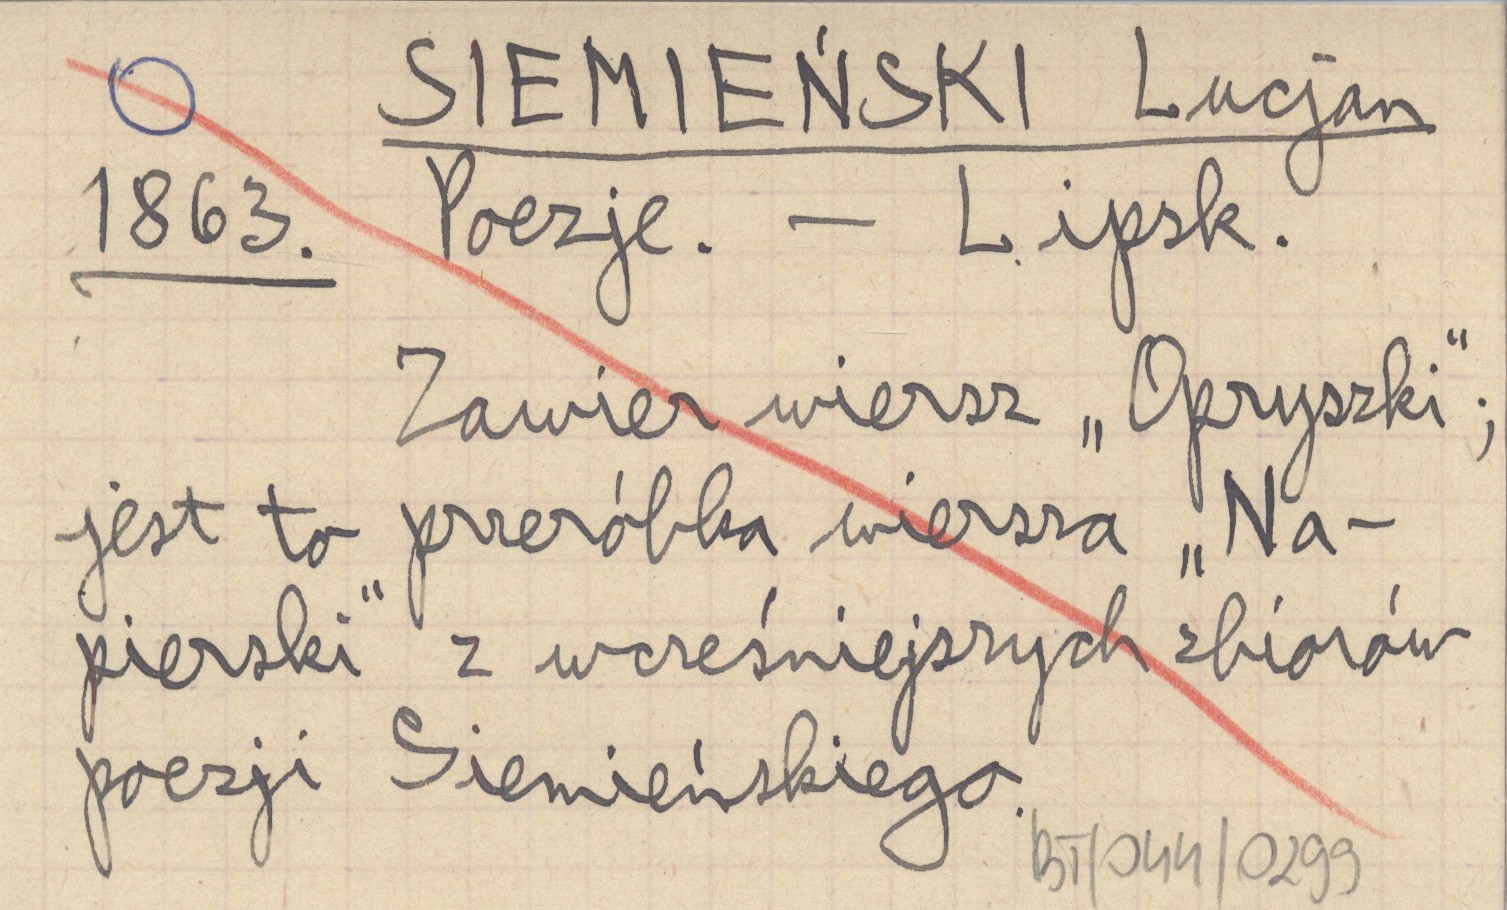 SIEMIEŃSKI Lucjan
1863. Poezje. — Lipsk.
Zawier wiersz „Opryszki“;
jest to przeróbka wiersza „Na-
pierski“ z wcześniejszych zbiorów
poezji Siemieńskiego.
BT/044/0299